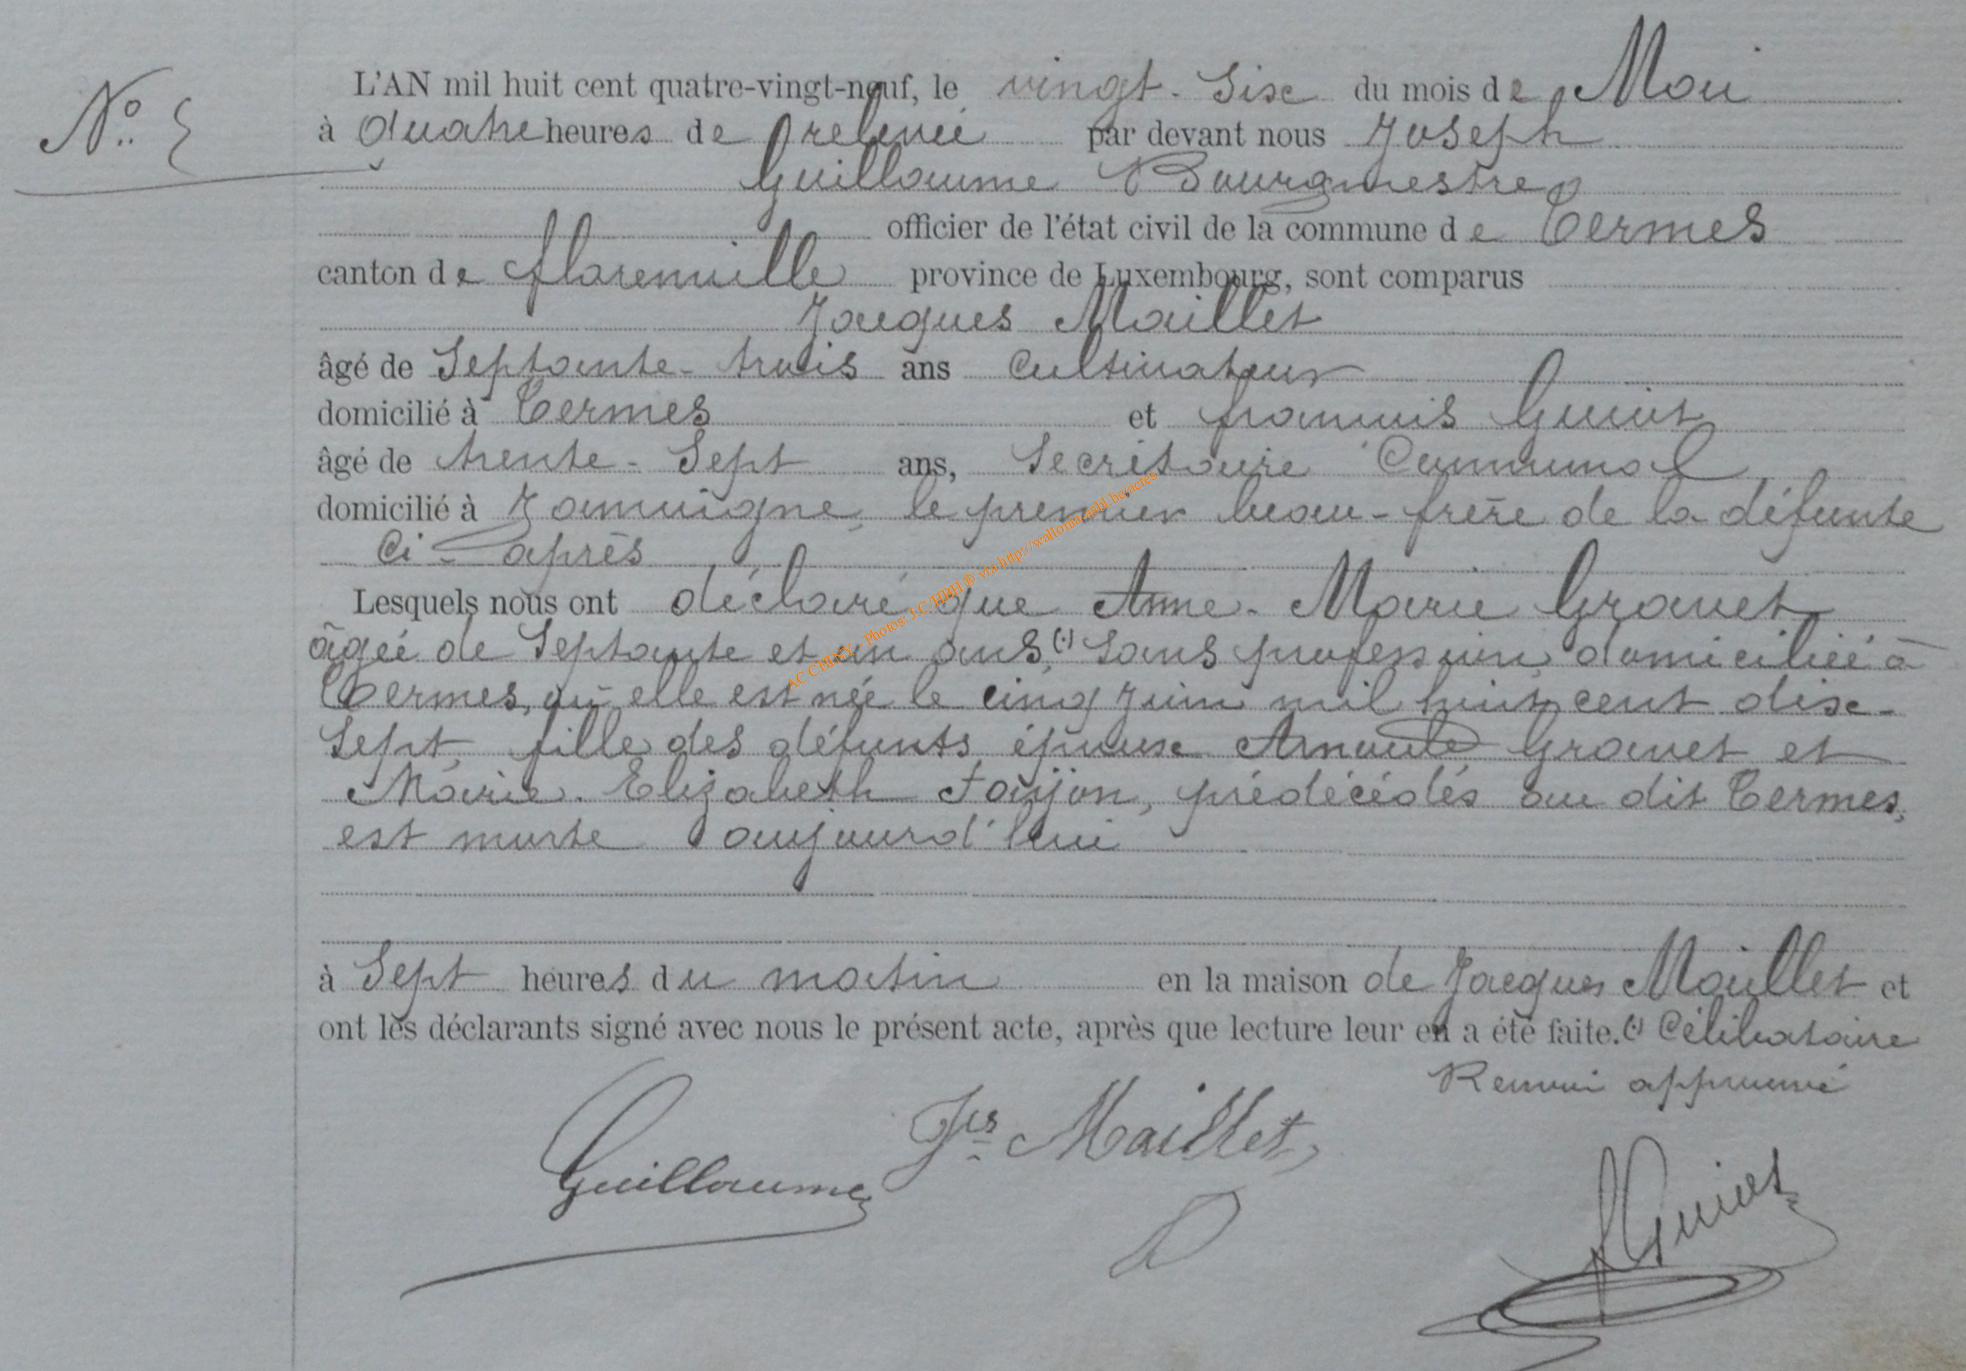 N° 5
L'AN mil huit cent quatre-vingt-neuf, le vingt-six du mois de Mai
à quatre heures de relevée par devant nous Joseph
Guillaume Bourgmestre
officier de l'état civil de la commune de Termes
canton de florenville province de Luxembourg, sont comparus
Jacques Maillet
âgé de Septante-trois ans Cultivateur
domicilié à Termes et françois Guiot
âgé de trente-Sept ans, Secrétaire Communal
domicilié à Jamoigne, le premier beau-frère de la défunte
Ci-après
Lesquels nous ont déclaré que Anne-Marie Gravet
âgée de Septante et un ans, (.) Sans profession, domiciliée à
Termes, où elle est née le cinq Juin mil huit cent dix-
Sept, fille des défunts époux Arnould Gravet et
Marie-Elizabeth, prédécédés au dit Termes,
est morte aujourd'hui
à Sept heures du matin en la maison de Jacques Maillet et
ont les déclarants signé avec nous le présent acte, après que lecture leur en a été faite. (.) Célibataire
Renvoi approuvé
Guillaume Jcs Maillet,
fGuiot